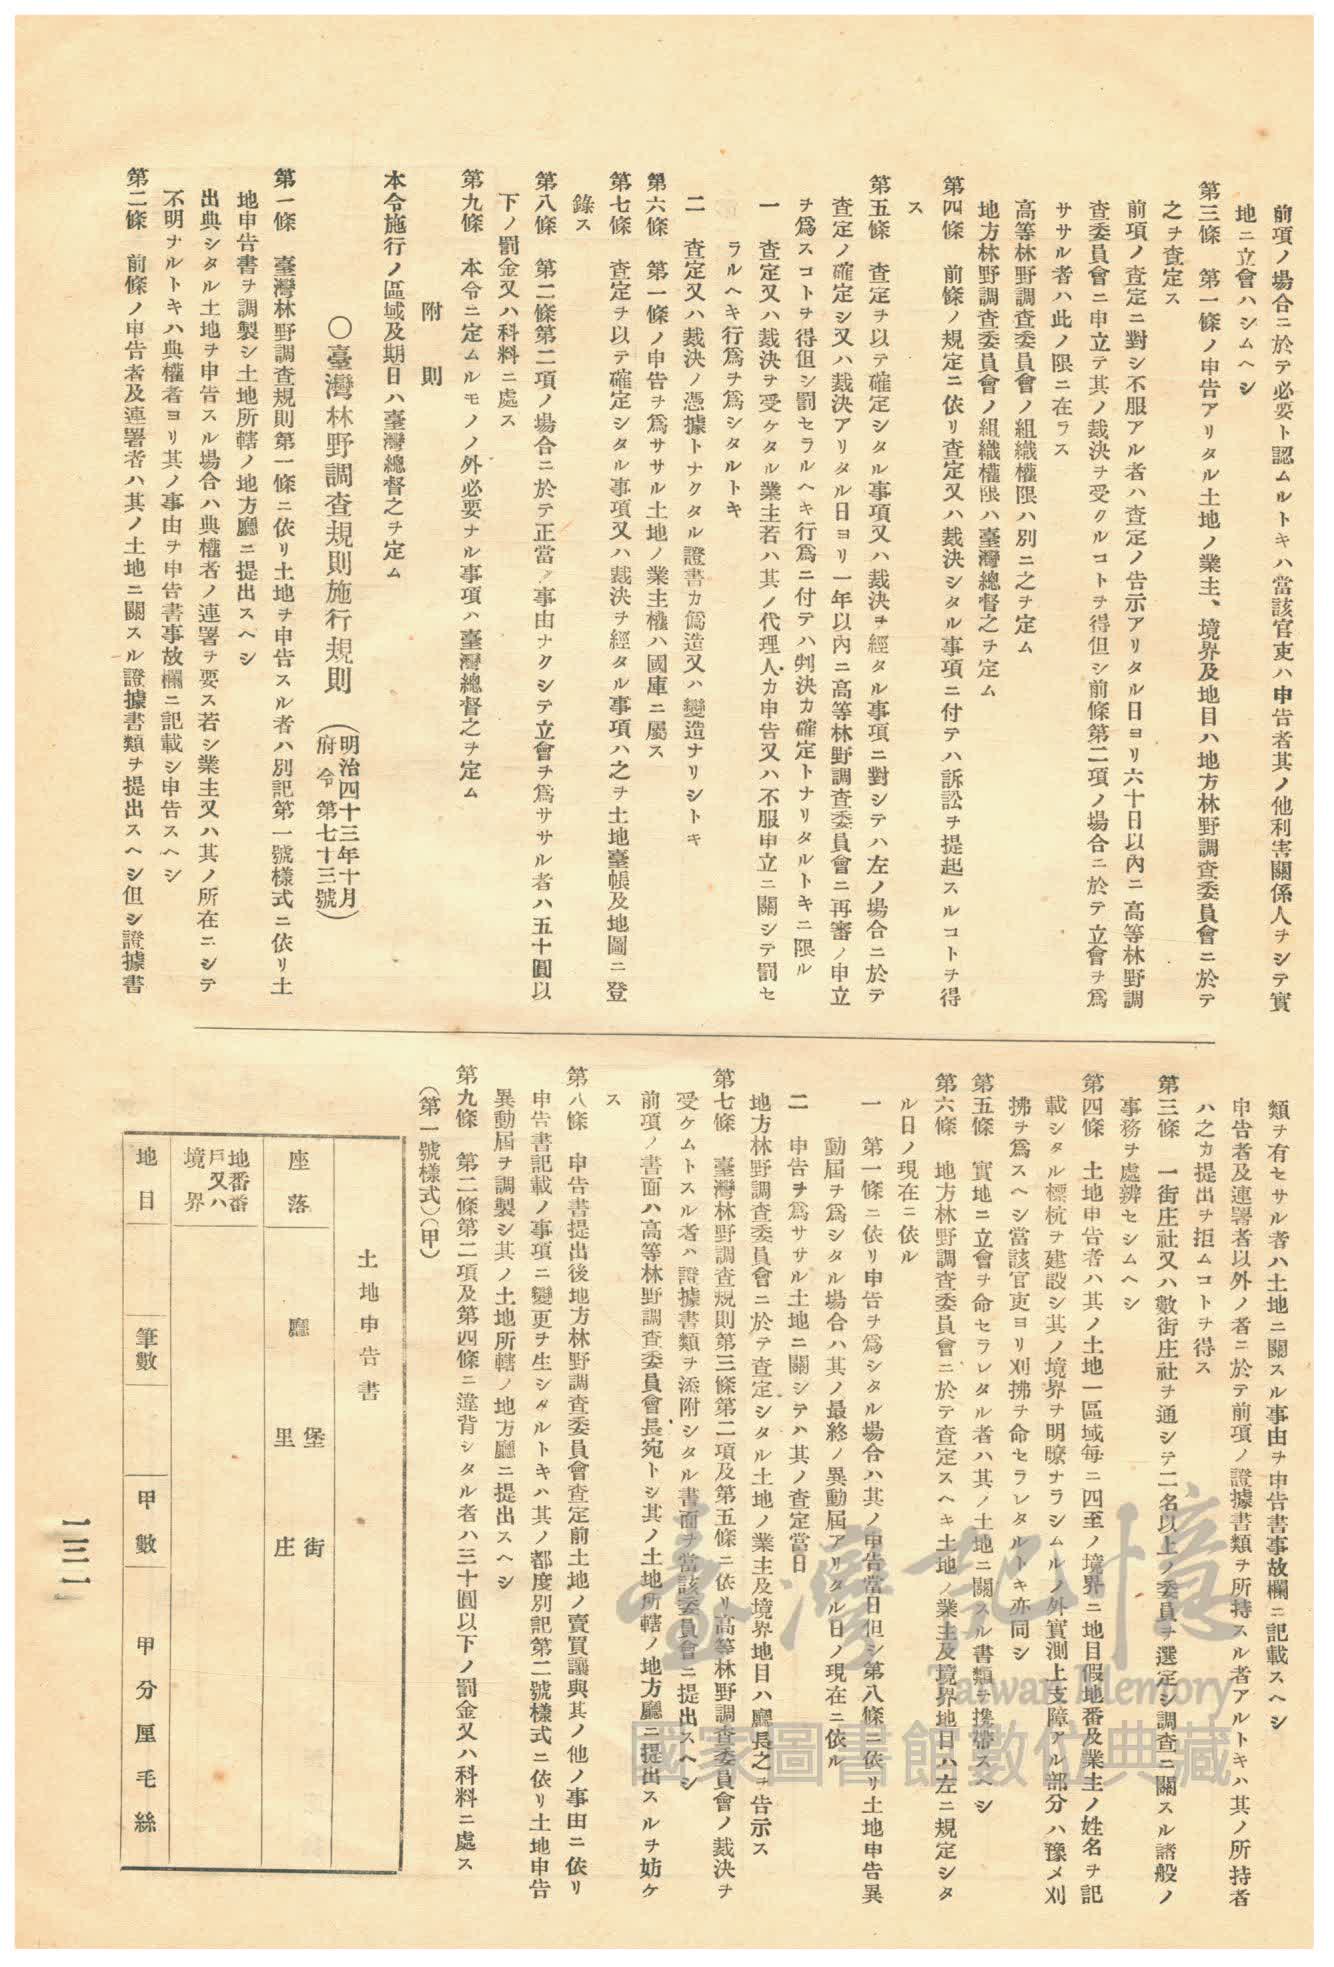 前項ノ場合ニ於テ必要ト認ムルトキハ當該官吏ハ申告者其ノ他利害關係人ヲシテ實
地ニ立會ハシムヘシ
第三條　第一條ノ申告アリタル土地ノ業主、境界及地目ハ地方林野調查委員會ニ於テ
之ヲ査定ス
前項ノ査定ニ對シ不服アル者ハ査定ノ告示アリタル日ヨリ六十日以內ニ高等林野調
查委員會ニ申立テ其ノ裁決ヲ受クルコトヲ得但シ前條第二項ノ場合ニ於テ立會ヲ爲
サヽル者ハ此ノ限ニ在ラス
高等林野調查委員會ノ組織權限ハ別ニ之ヲ定ム
地方林野調查委員會ノ組織權限ハ臺灣總督之ヲ定ム
第四條　前條ノ規定ニ依リ査定又ハ裁決シタル事項ニ付テハ訴訟ヲ提起スルコトヲ得
ス
第五條　査定ヲ以テ確定シタル事項又ハ裁決ヲ經タル事項ニ對シテハ左ノ場合ニ於テ
査定ノ確定シ又ハ裁決アリタル日ヨリ一年以內ニ高等林野調查委員會ニ再審ノ申立
ヲ爲スコトヲ得但シ罰セラルヘキ行爲ニ付テハ判決カ確定トナリタルトキニ限ル
一　査定又ハ裁決ヲ受ケタル業主若ハ其ノ代理人カ申告又ハ不服申立ニ關シテ罰セ
ラルヘキ行爲ヲ爲シタルトキ
二　査定又ハ裁決ノ憑據トナクタル證書カ僞造又ハ變造ナリシトキ
第六條　第一條ノ申告ヲ爲サヽル土地ノ業主權ハ國庫ニ屬ス
第七條　査定ヲ以テ確定シタル事項又ハ裁決ヲ經タル事項ハ之ヲ土地臺帳及地圖ニ登
錄ス
第八條　第二條第二項ノ場合ニ於テ正當ノ事由ナクシテ立會ヲ爲サヽル者ハ五十圓以
下ノ罰金又ハ科料ニ處ス
第九條　本令ニ定ムルモノノ外必要ナル事項ハ臺灣總督之ヲ定ム
附則
本令施行ノ區域及期日ハ臺灣總督之ヲ定ム
〇臺灣林野調查規則施行規則（明治四十三年十月
府令第七十三號）
第一條　臺灣林野調查規則第一條ニ依リ土地ヲ申告スル者ハ別記第一號樣式ニ依リ土
地申告書ヲ調製シ土地所轄ノ地方廳ニ提出スヘシ
出典シタル土地ヲ申告スル場合ハ典權者ノ連署ヲ要ス若シ業主又ハ其ノ所在ニシテ
不明ナルトキハ典權者ヨリ其ノ事由ヲ申告書事故欄ニ記載シ申告スヘシ
第二條　前條ノ申告者及連署者ハ其ノ土地ニ關スル證據書類ヲ提出スヘシ但シ證據書
類ヲ有セサル者ハ土地ニ關スル事由ヲ申告書事故欄ニ記載スヘシ
申告者及連署者以外ノ者ニ於テ前項ノ證據書類ヲ所持スル者アルトキハ其ノ所持者
ハ之カ提出ヲ拒ムコトヲ得ス
第三條　一街庄社又ハ數街庄社ヲ通シテ二名以上ノ委員ヲ選定シ調查ニ關スル諸般ノ
事務ヲ處辨セシムヘシ
第四條　土地申告者ハ其ノ土地一區域每ニ四至ノ境界ニ地目假地番及業主ノ姓名ヲ記
載シタル標杭ヲ建設シ其ノ境界ヲ明暸ナラシムルノ外實測上支障アル部分ハ豫メ刈
拂ヲ爲スヘシ當該官吏ヨリ刈拂ヲ命セラレタルトキ亦同シ
第五條　實地ニ立會ヲ命セラレタル者ハ其ノ土地ニ關スル書類ヲ携帶スヘシ
第六條　地方林野調查委員會ニ於テ査定スヘキ土地ノ業主及境界地目ハ左ニ規定シタ
ル日ノ現在ニ依ル
一　第一條ニ依リ申告ヲ爲シタル場合ハ其ノ申告當日但シ第八條ニ依リ土地申告異
動屆ヲ爲シタル場合ハ其ノ最終ノ異動屆アリタル日ノ現在ニ依ル
二　申告ヲ爲サヽル土地ニ關シテハ其ノ査定當日
地方林野調查委員會ニ於テ査定シタル土地ノ業主及境界地目ハ廳長之ヲ告示ス
第七條　臺灣林野調查規則第三條第二項及第五條ニ依リ高等林野調查委員會ノ裁決ヲ
受ケムトスル者ハ證據書類ヲ添附シタル書面ヲ當該委員會ニ提出スヘシ
前項ノ書面ハ高等林野調查委員會長宛トシ其ノ土地所轄ノ地方廳ニ提出スルヲ妨ケ
ス
第八條　申告書提出後地方林野調查委員會査定前土地ノ賣買讓與其ノ他ノ事由ニ依リ
申告書記載ノ事項ニ變更ヲ生シタルトキハ其ノ都度別記第二號樣式ニ依リ土地申告
異動屆ヲ調製シ其ノ土地所轄ノ地方廳ニ提出スヘシ
第九條　第二條第二項及第四條ニ違背シタル者ハ三十圓以下ノ罰金又ハ科料ニ處ス
（第一號樣式）（甲）
土地申告書
座落　廳　堡里　街庄
地番番戶又ハ境界
地目　筆數　甲數　甲分厘毛絲
一三一
臺灣記憶
Taiwan Memory
國家圖書館數位典藏